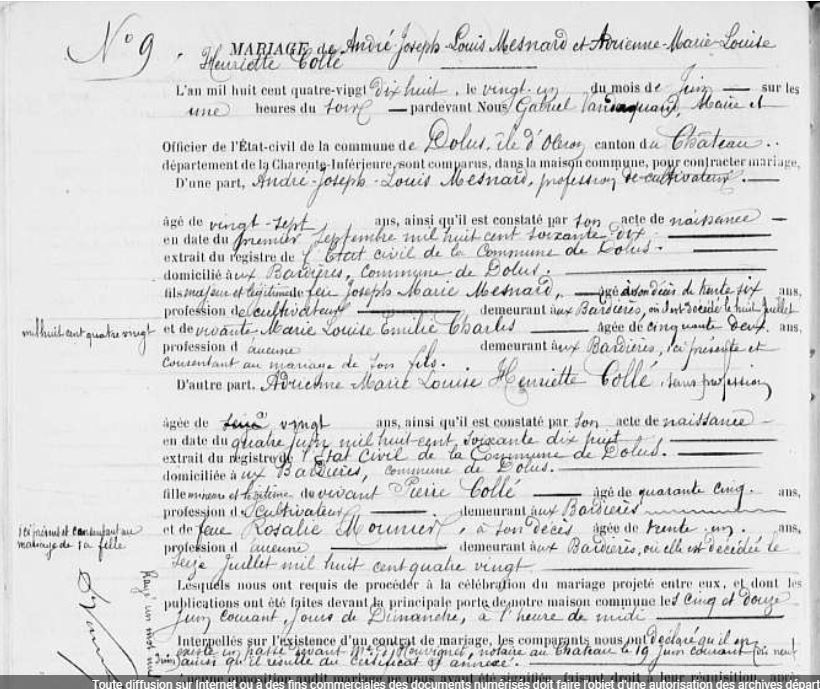 N° 9
MARIAGE de André-Joseph-Louis Mesnard et Adrienne-Marie-Louise
Henriette Collé
L'an mil huit cent quatre-vingt dix huit, le vingt-un du mois de Juin sur les
une heures du soir pardevant Nous Gabriel Maire et
Officier de l'État-civil de la commune de Dolus, île d'Oleron canton du Château
département de la Charente-Inférieure, sont comparus, dans la maison commune, pour contracter mariage,
D'une part, André-Joseph-Louis Mesnard, profession de cultivateur.
âgé de vingt-sept ans, ainsi qu'il est constaté par son acte de naissance
en date du premier Septembre mil huit cent soixante dix
extrait du registre de l'Etat civil de la Commune de Dolus.
domicilié aux Bardières, Commune de Dolus.
fils majeur et légitime de feu Joseph Marie Mesnard, âgé à son décès de trente six ans,
profession de cultivateur demeurant aux Bardières, où il est décédé le huit Juillet
mil huit cent quatre vingt
et de vivante Marie Louise Emilie Charles âgée de cinquante deux ans,
profession d'aucune demeurant aux Bardières, ici présente et
consentant au mariage de son fils.
D'autre part, Adrienne Marie Louise Henriette Collé, sans profession
âgée de vingt ans, ainsi qu'il est constaté par son acte de naissance
en date du quatre Juin mil huit cent soixante dix huit
extrait du registre de l'Etat Civil de la Commune de Dolus.
domiciliée aux Bardières, commune de Dolus.
fille mineure et légitime de vivant Pierre Collé âgé de quarante cinq ans,
profession de Cultivateur demeurant aux Bardières
ici présent et consentant au
mariage de sa fille
et de feue Rosalie Mounier, à son décès âgée de trente un ans,
profession d'aucune demeurant aux Bardières, où elle est décédée le
seize Juillet mil huit cent quatre vingt
Rayé un mot nul
Lesquels nous ont requis de procéder à la célébration du mariage projeté entre eux, et dont les
publications ont été faites devant la principale porte de notre maison commune les cinq et douze
Juin courant, jours de Dimanche, à l'heure de midi
Interpellés sur l'existence d'un contrat de mariage, les comparants nous ont déclaré qu'il en
existe un passé devant notaire au Château le 19 Juin courant
ainsi qu'il résulte du certificat ci annexé.
Toute diffusion sur Internet ou à des fins commerciales des documents numérisés doit faire l'objet d'une autorisation des archives départ